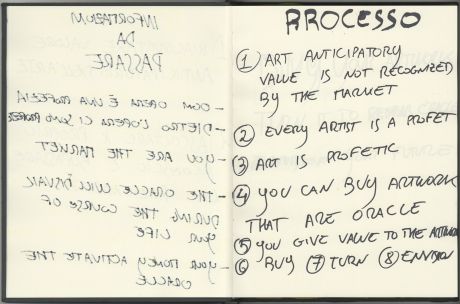 DA
PASSARE
- OGNI OPERA È UNA PROFEZIA
- DIETRO L'OPERA CI SONO
- YOU ARE THE MARKET
- THE ORACLE WILL DISVAIL
DURING THE COURSE OF
YOUR LIFE
- YOUR MONEY ACTIVATE THE
ORACLE
PROCESSO
1 ART ANTICIPATORY
VALUE IS NOT RECOGNIZED
BY THE MARKET
2 EVERY ARTIST IS A PROFET
3 ART IS PROFETIC
4 YOU CAN BUY ARTWORK
THAT ARE ORACLE
5 YOU GIVE VALUE TO THE ARTWORK
6 BUY 7 TURN 8 ENVISION